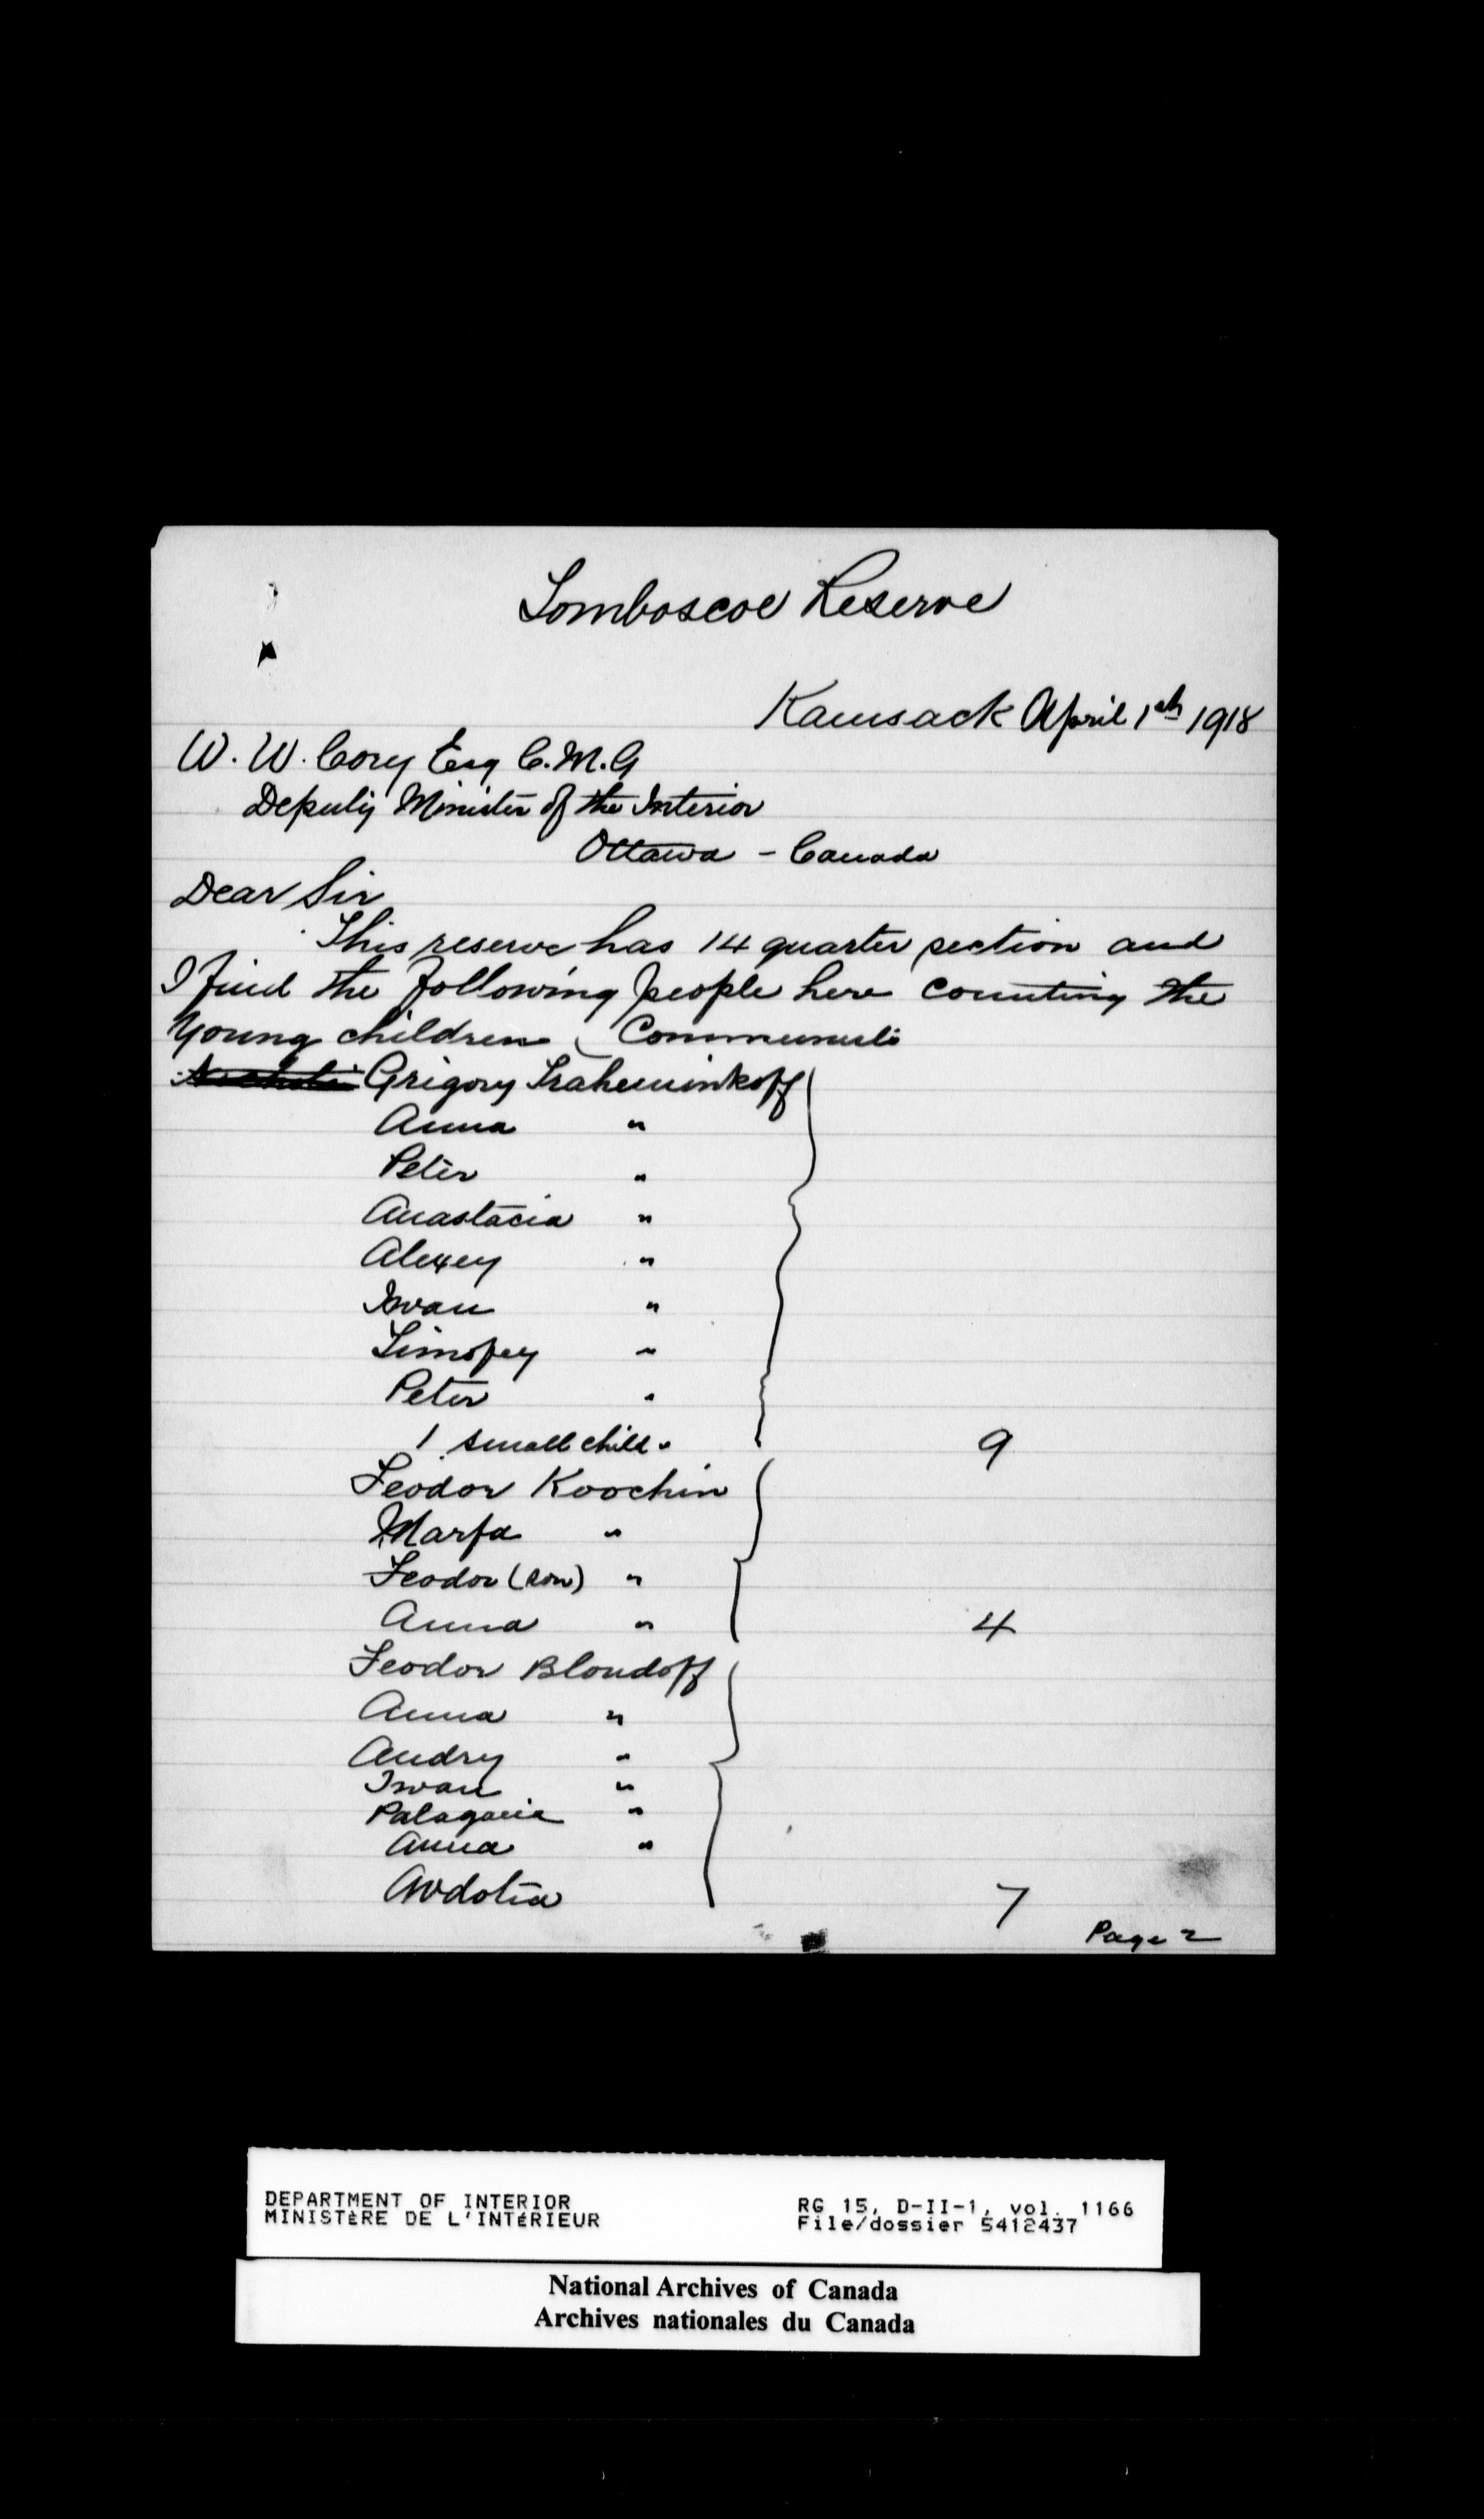 Tomboscoe Reserve
Kamsack April 1st 1918
W. W. Cory Esq C.M.G
Deputy Minister of the Interior
Ottawa - Canada
Dear Sir
This reserve has 14 quarter section and
I find the following people here counting the
Young children (Communists
Grigory
Anna "
Peter "
Anastacia "
Alexey "
Iwan "
Timofey "
Peter "
1 small child " 9
Feodor Koochin
Marfa "
Feodor (son) "
Anna " 4
Feodor Blondoff
Anna "
Andry "
Iwan "
Palagaia "
Anna "
Avdotia 7
Page 2
DEPARTMENT OF INTERIOR
MINISTÈRE DE L'INTÉRIEUR
RG 15, D-II-1, vol. 1166
File/dossier 5412437
National Archives of Canada
Archives nationales du Canada